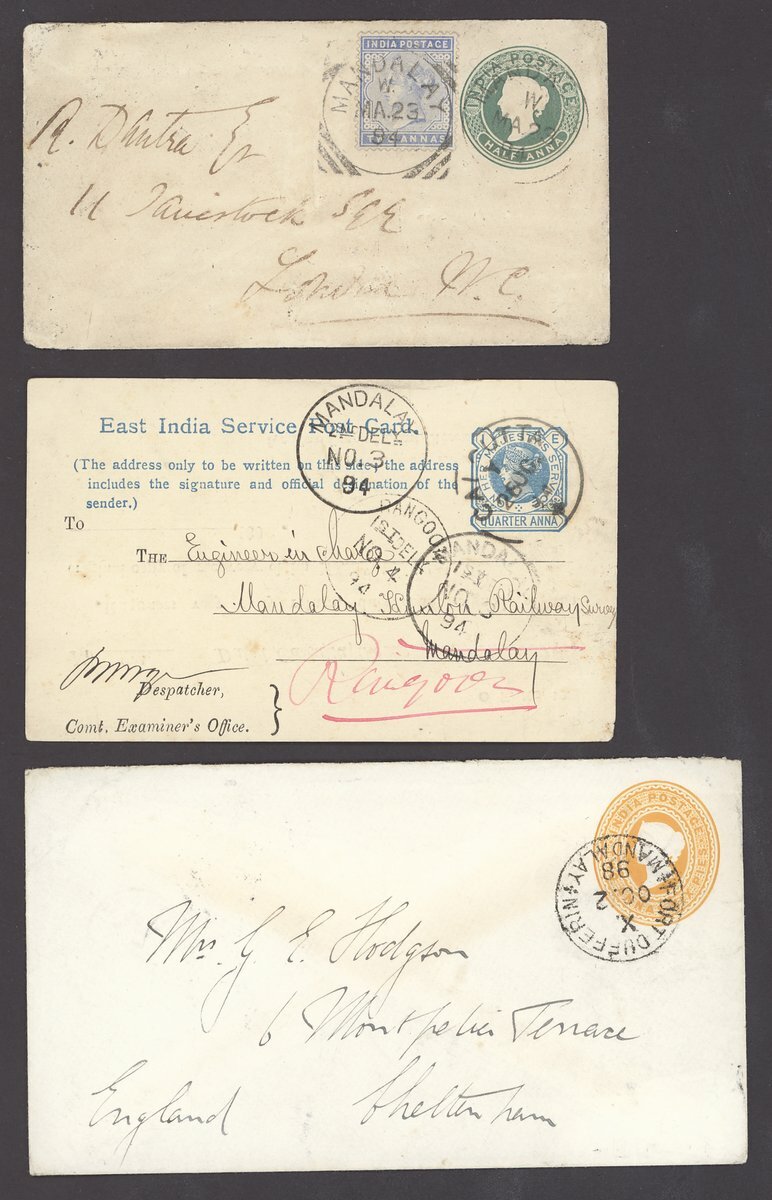 INDIA POSTAGE
TWO ANNAS
MANDALAY
W.
MA.23
94
INDIA POSTAGE
HALF ANNA
W.
MA.23
R. Dantra Esq
11 Tavistock Sqr
London W.C.
East India Service Post Card.
(The address only to be written on this side, the address
includes the signature and official designation of the
sender.)
MANDALAY
2ND DELY.
NO.3
94
HER MAJESTY'S SERVICE
QUARTER ANNA
CALCUTTA
To
THE Engineer in charge
Mandalay Kunlon Railway Survey
Mandalay
Rangoon
RANGOON
1ST DELY.
NO.4
94
MANDALAY
1ST
NO. 3
94
Despatcher,
Comt. Examiner's Office.
INDIA POSTAGE
FORT DUFFERIN
MANDALAY
X.
OC.2
98
Mrs. G. E. Hodgson
6 Montpelier Terrace
Cheltenham
England